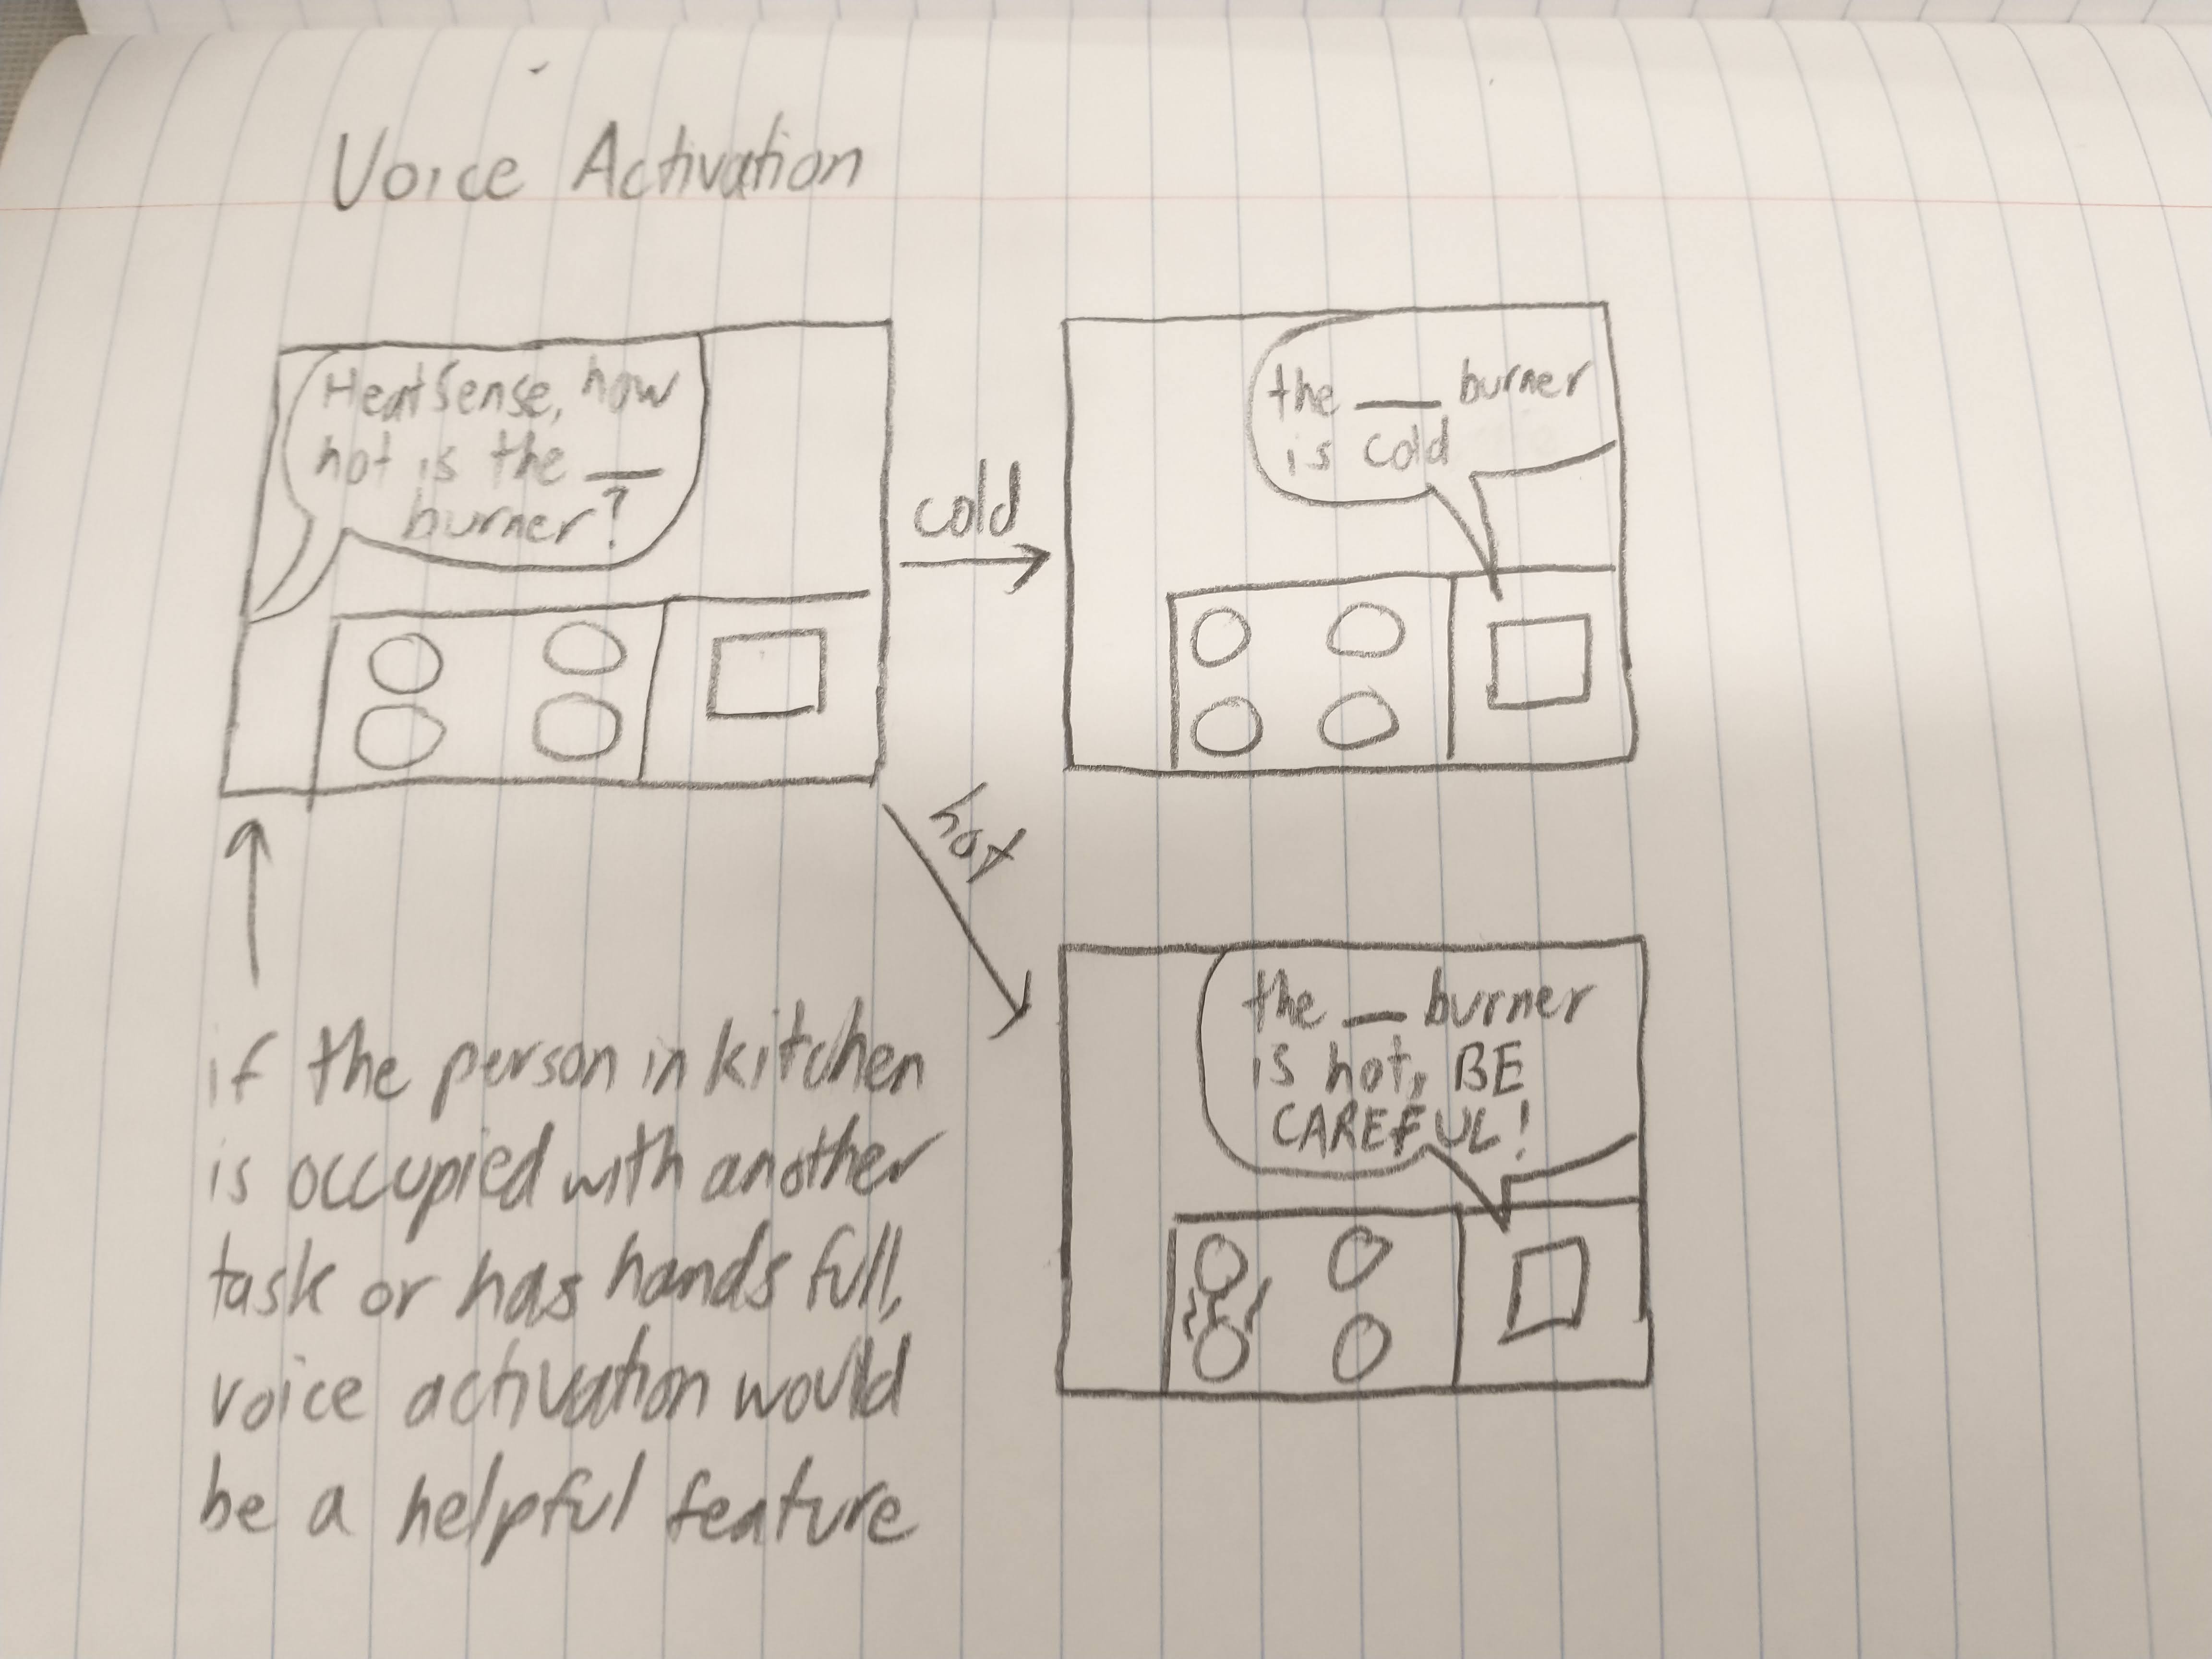 Voice Activation
HeatSense, how
hot is the __
burner?
cold
the __ burner
is cold
hot
the __ burner
is hot, BE
CAREFUL!
if the person in kitchen
is occupied with another
task or has hands full,
voice activation would
be a helpful feature